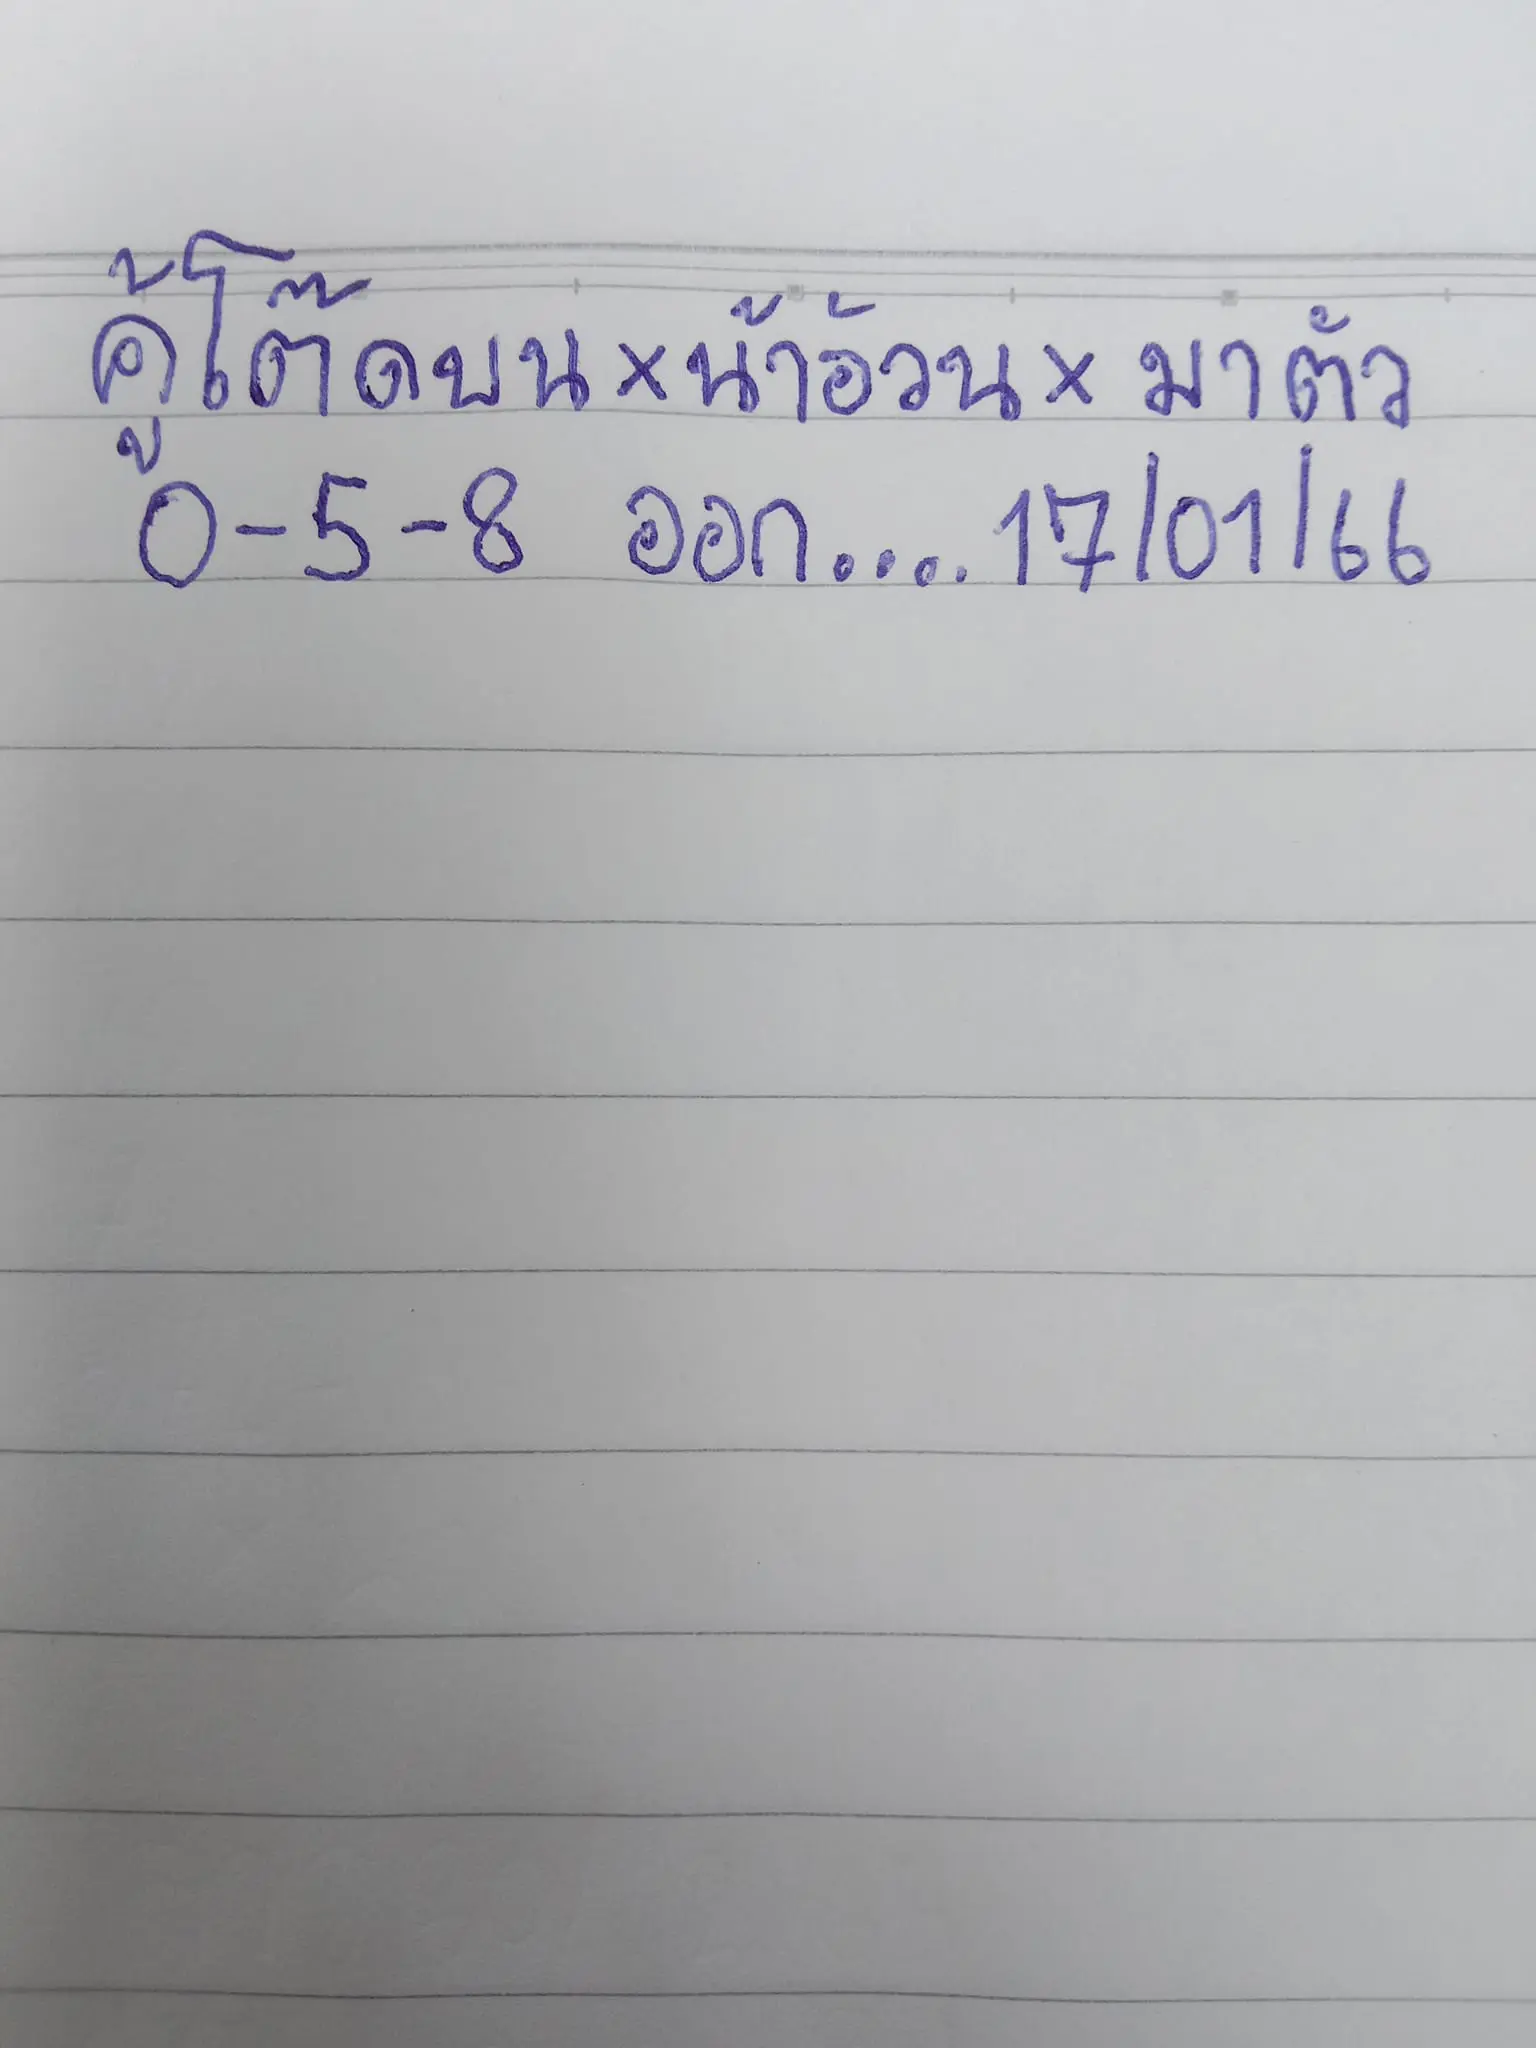 คู้โต๊ดบน×น้าอ้วน× มาตัว
0-5-8 ออก.... 17/01/66